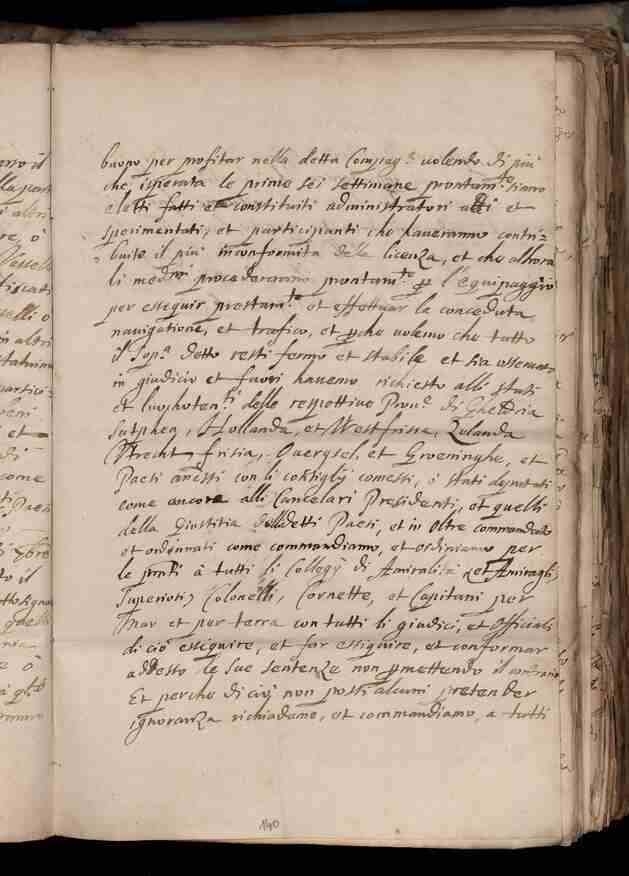 buono per profitar nella detta Compag.a volendo di più
che ispirata le prime sei settimane prontam.te siano
eletti fatti et constituiti administratori atti et
sperimentati, et participianti che haveranno contri=
buite il più in conformita della licenza, et che alhora
li med.mi procederanno prontam.te l'equipaggio
per esseguir prestam.te et effettuar la conceduta
navigatione, et trafico, et perche volemo che tutto
il sop.a detto resti fermo et stabile et sia osservato
in giudicio et fuori havemo richiesto alli stati
et luochoten.ti delle respettive Prov.e di Gheldria
Sutphen, Hollanda, et Westfrisia, Zelanda
Utrecht, frisia, Overyssel, et Groeninghe, et
Paesi anessi con li consiglij comessi, o stati deputati
come ancora alli Cancelari Presidenti, et quelli
della Giustitia delli detti Paesi, et in oltre commandato
et ordinnati come commandiamo, et ordiniamo per
le pnti à tutti li Collegij di Amiralità et Amiragli,
Superiori, Colonelli, Cornette, et Capitani per
Mar et per terra con tutti li giudici, et Officiali
di ciò esseguire, et far esseguire, et conformar
addesso le sue sentenze non permettendo il contrario
Et perche di cio non possi alcuni pretender
ignoranza richiadame, et commandiamo, a tutti
140